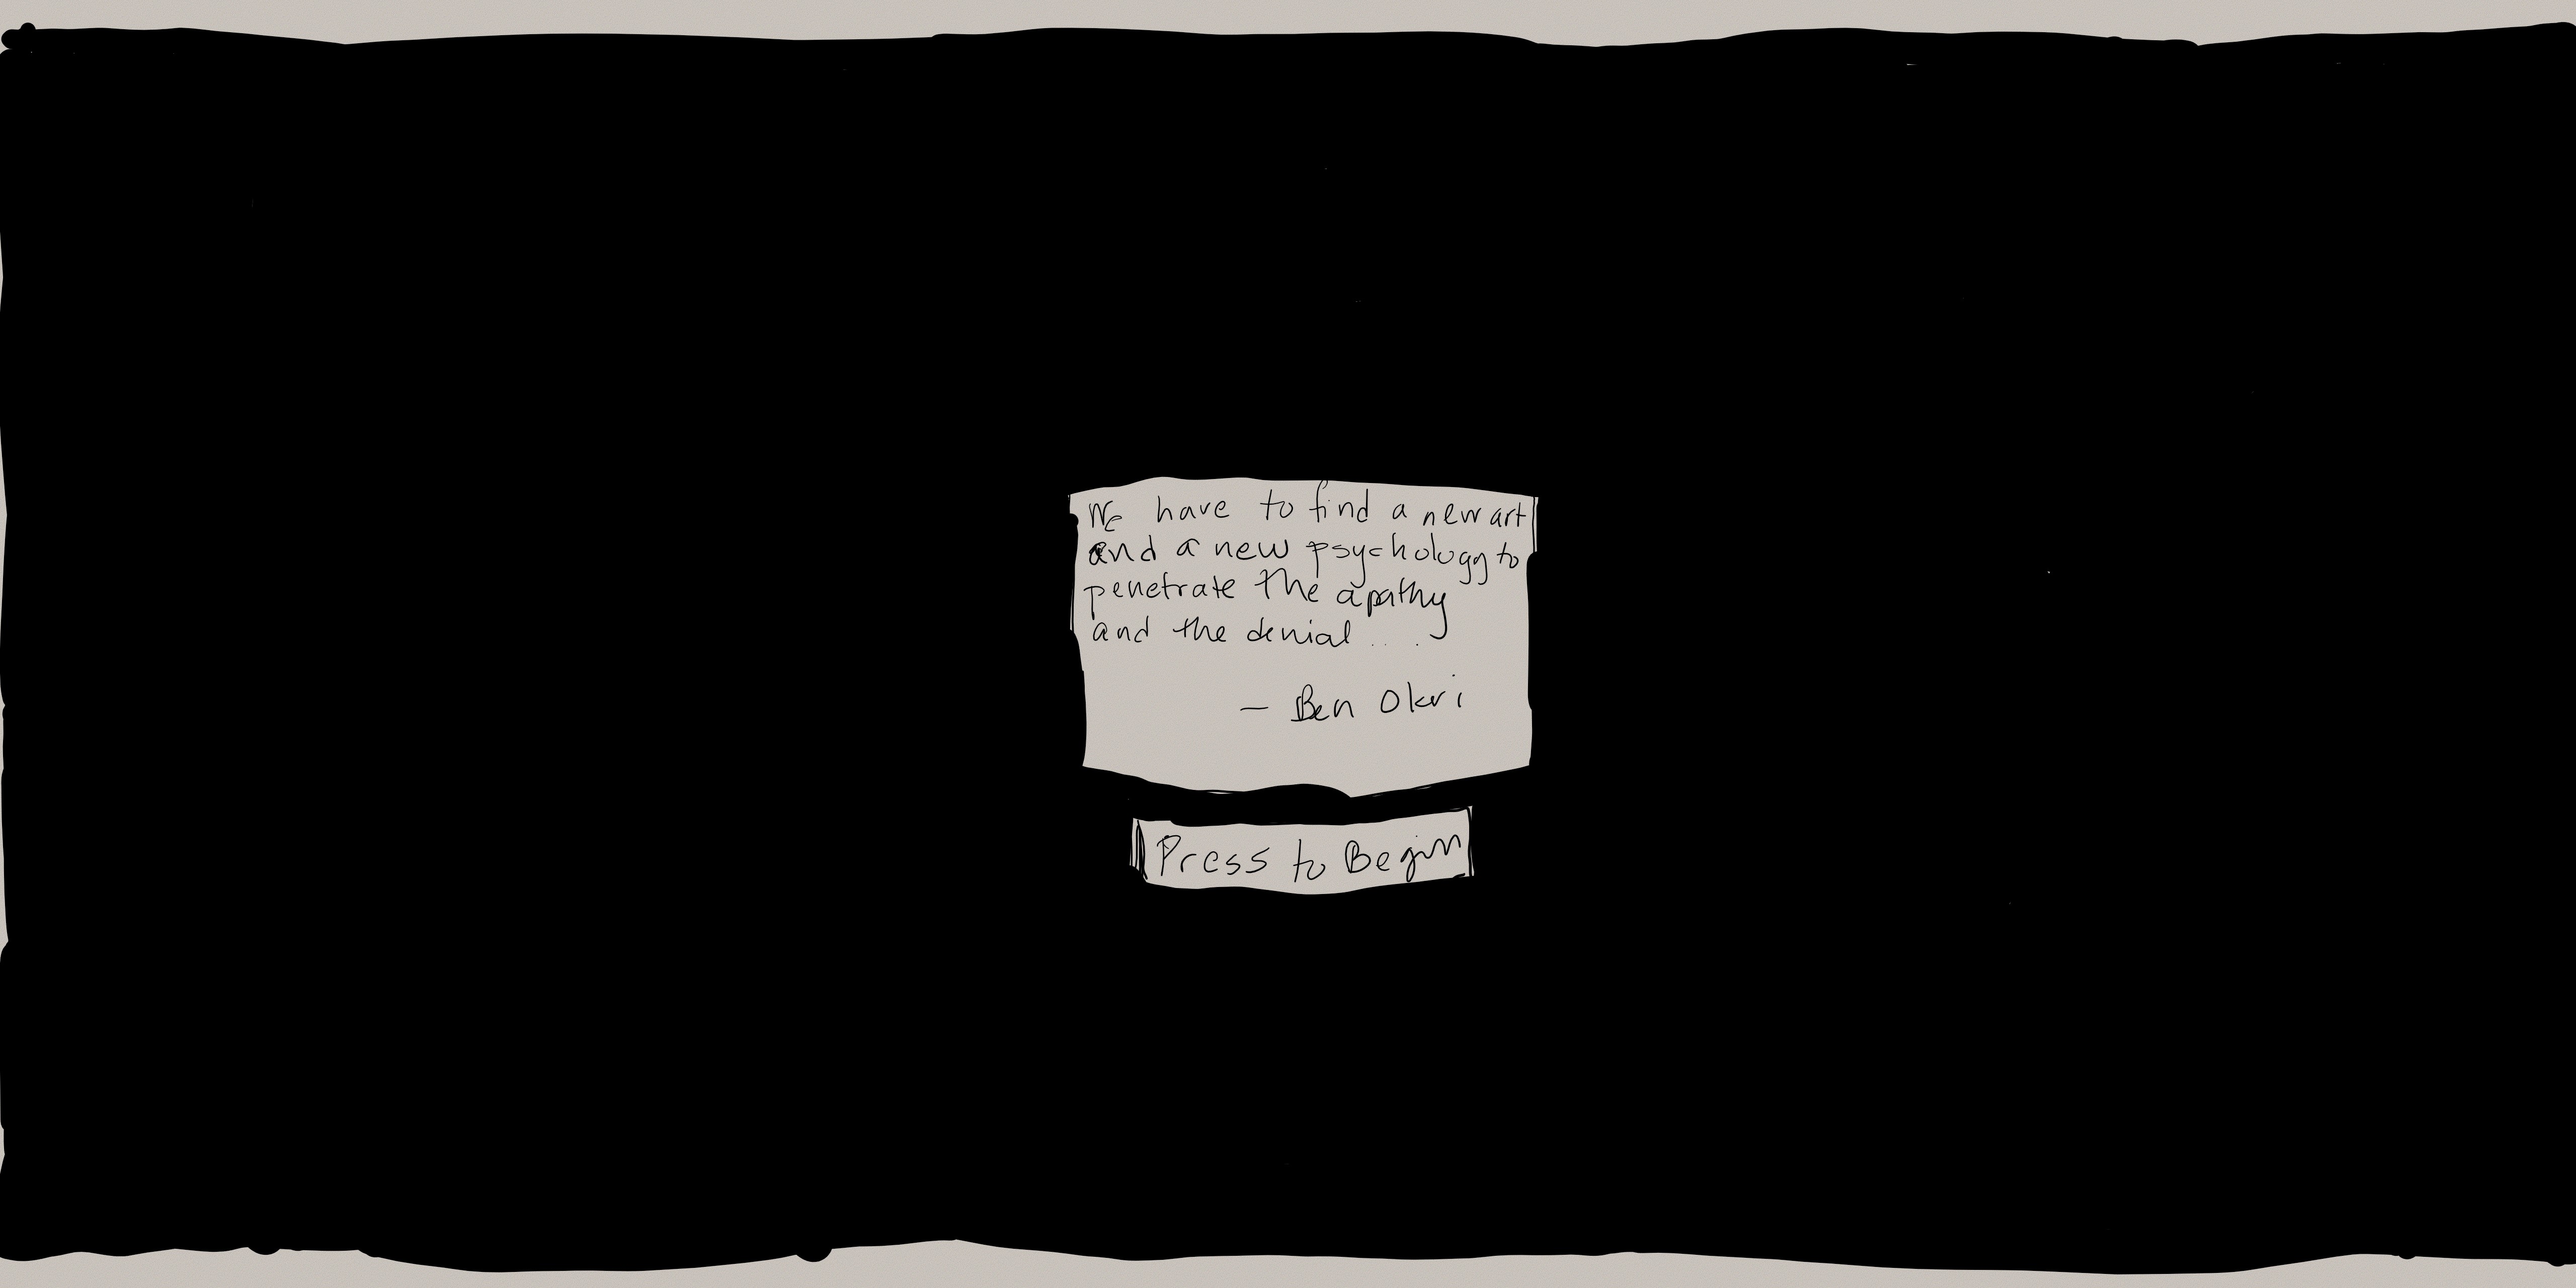 We have to find a new art
and a new psychology to
penetrate the apathy
and the denial....
— Ben Okri
Press to Begin